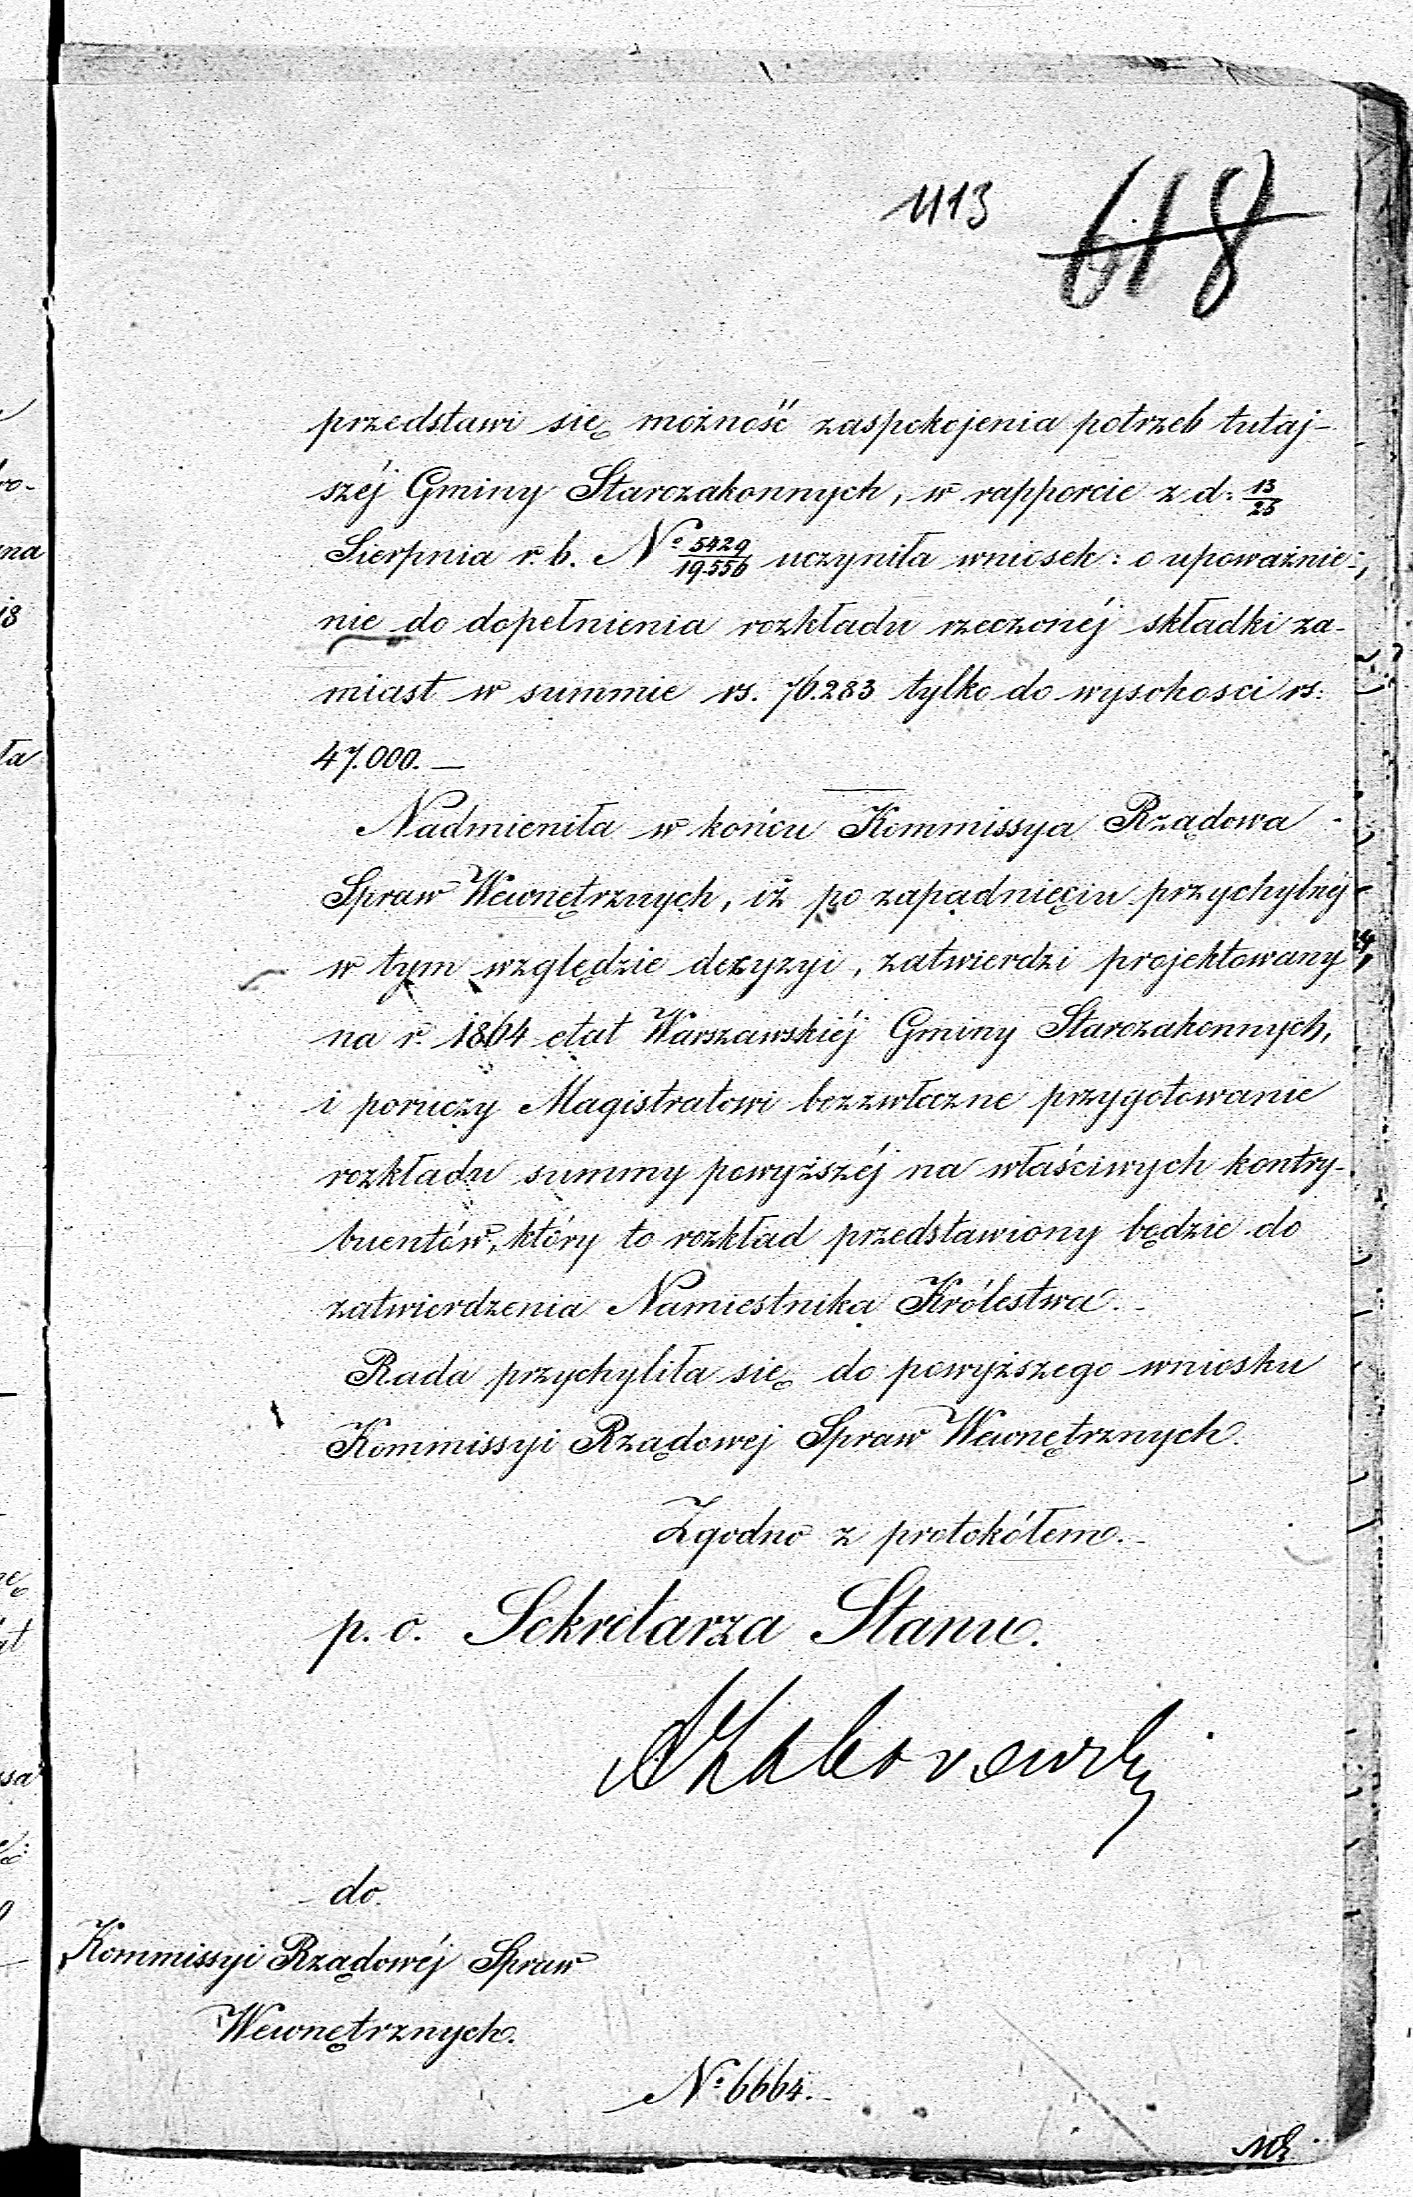 1113 618
przedstawi się możność zaspokojenia potrzeb tutaj-
széj Gminy Starozakonnych, w rapporcie z d: 13/25
Sierpnia r. b. No 5429/19.556 uczyniła wniosek: o upoważnie-
nie do dopełnienia rozkładu rzeczonéj składki za-
miast w summie rs. 76.283 tylko do wysokosci rs:
47.000. —
Nadmieniła w końcu Kommissya Rządowa
Spraw Wewnętrznych, iż po zapadnięciu przychylnéj
w tym względzie decyzyi, zatwierdzi projektowany
na r. 1864 etat Warszawskiéj Gminy Starozakonnych,
i poruczy Magistratowi bezzwłoczne przygotowanie
rozkładu summy powyższéj na właściwych kontry-
buentów, który to rozkład przedstawiony będzie do
zatwierdzenia Namiestnika Królestwa.
Rada przychyliła się do powyższego wniosku
Kommissyi Rządowej Spraw Wewnętrznych.
Zgodno z protokółem.
p. o. Sekretarza Stanu.
do
Kommissyi Rządowéj Spraw
Wewnętrznych.
No 6664.